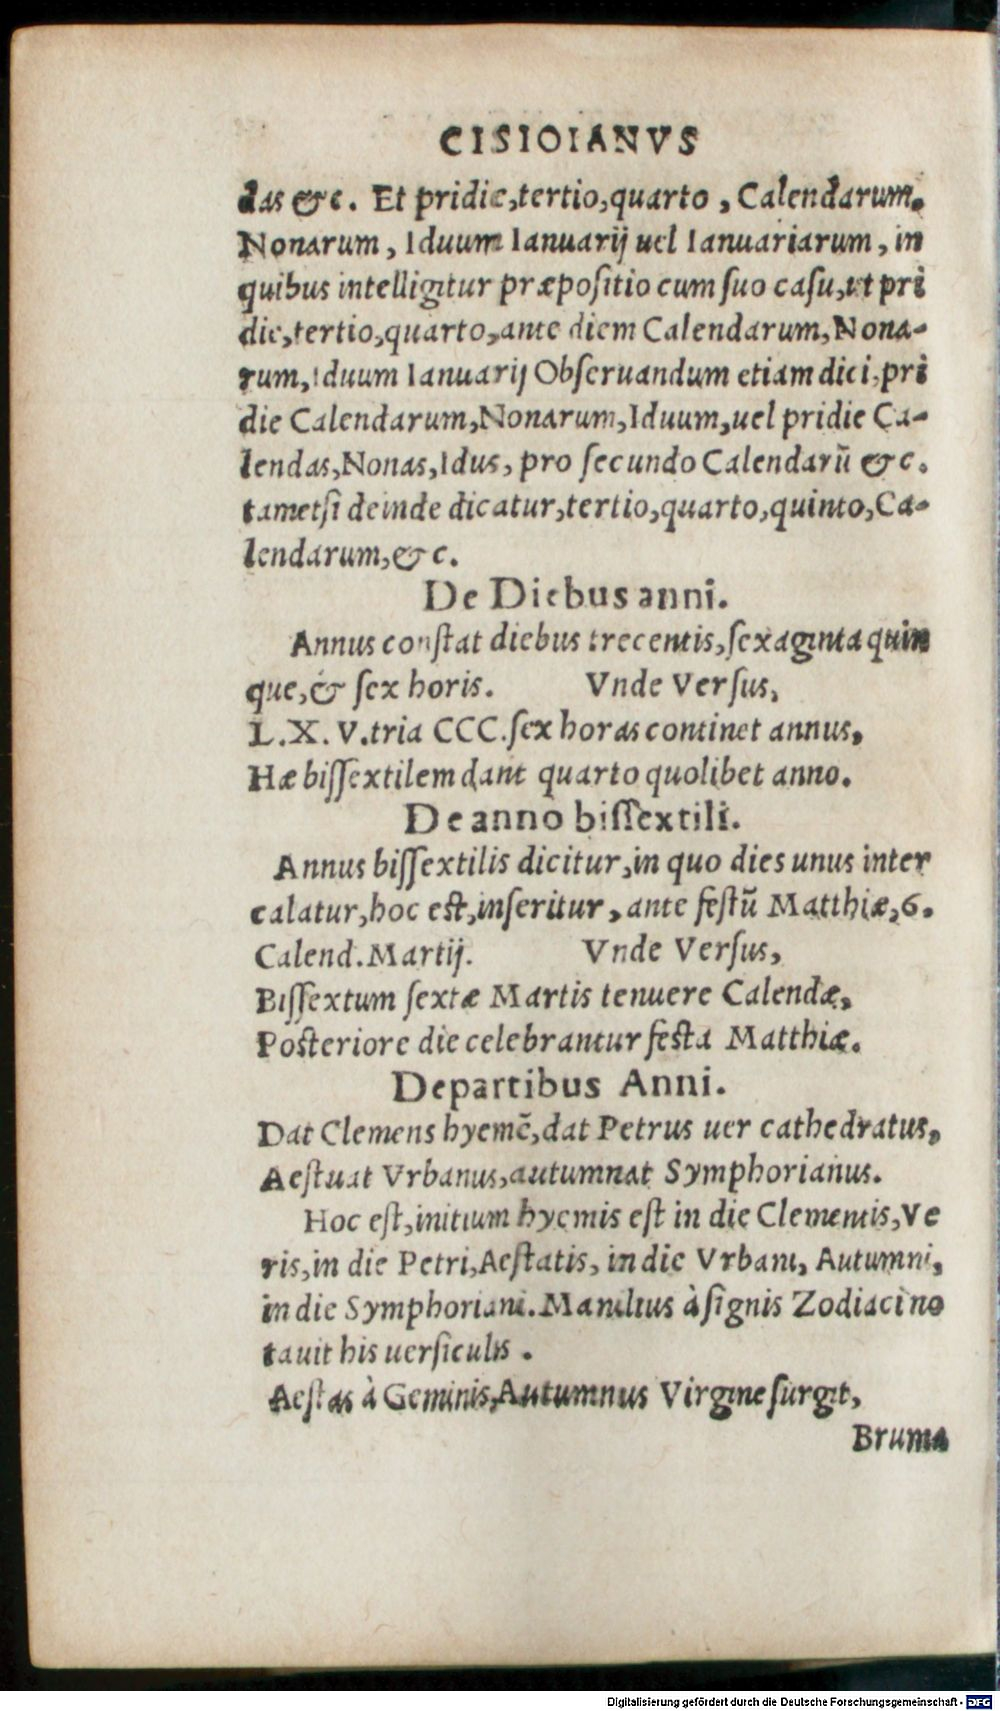 CISIOIANVS
das &c. Et pridie,tertio,quarto , Calendarum.
Nonarum , Iduum Ianuarij uel Ianuariarum , in
quibus intelligitur præpositio cum suo casu,ut pri
die,tertio,quarto,ante diem Calendarum,Nona-
rum,Iduum Ianuarij Obseruandum etiam dici,pri
die Calendarum,Nonarum,Iduum,uel pridie Ca-
lendas,Nonas,Idus, pro secundo Calendarũ &c.
tametsi deinde dicatur,tertio,quarto,quinto,Ca-
lendarum,&c.
De Diebus anni.
Annus constat diebus trecentis,sexaginta quin
que,& sex horis. Vnde Versus,
L.X.V.tria CCC.sex horas continet annus,
Hæ bissextilem dant quarto quolibet anno.
De anno bissextili.
Annus bissextilis dicitur,in quo dies unus inter
calatur,hoc est,inseritur, ante festũ Matthiæ,6.
Calend.Martij. Vnde Versus,
Bissextum sextæ Martis tenuere Calendæ,
Posteriore die celebrantur festa Matthiæ.
De partibus Anni.
Dat Clemens hyemẽ,dat Petrus uer cathedratus,
Aestuat Vrbanus,autumnat Symphorianus.
Hoc est,initium hyemis est in die Clementis,Ve
ris,in die Petri,Aestatis, in die Vrbani, Autumni,
in die Symphoriani.Manilius à signis Zodiaci no
tauit his uersiculis .
Aestas à Geminis,Autumnus Virgine surgit,
Bruma
Digitalisierung gefördert durch die Deutsche Forschungsgemeinschaft - DFG